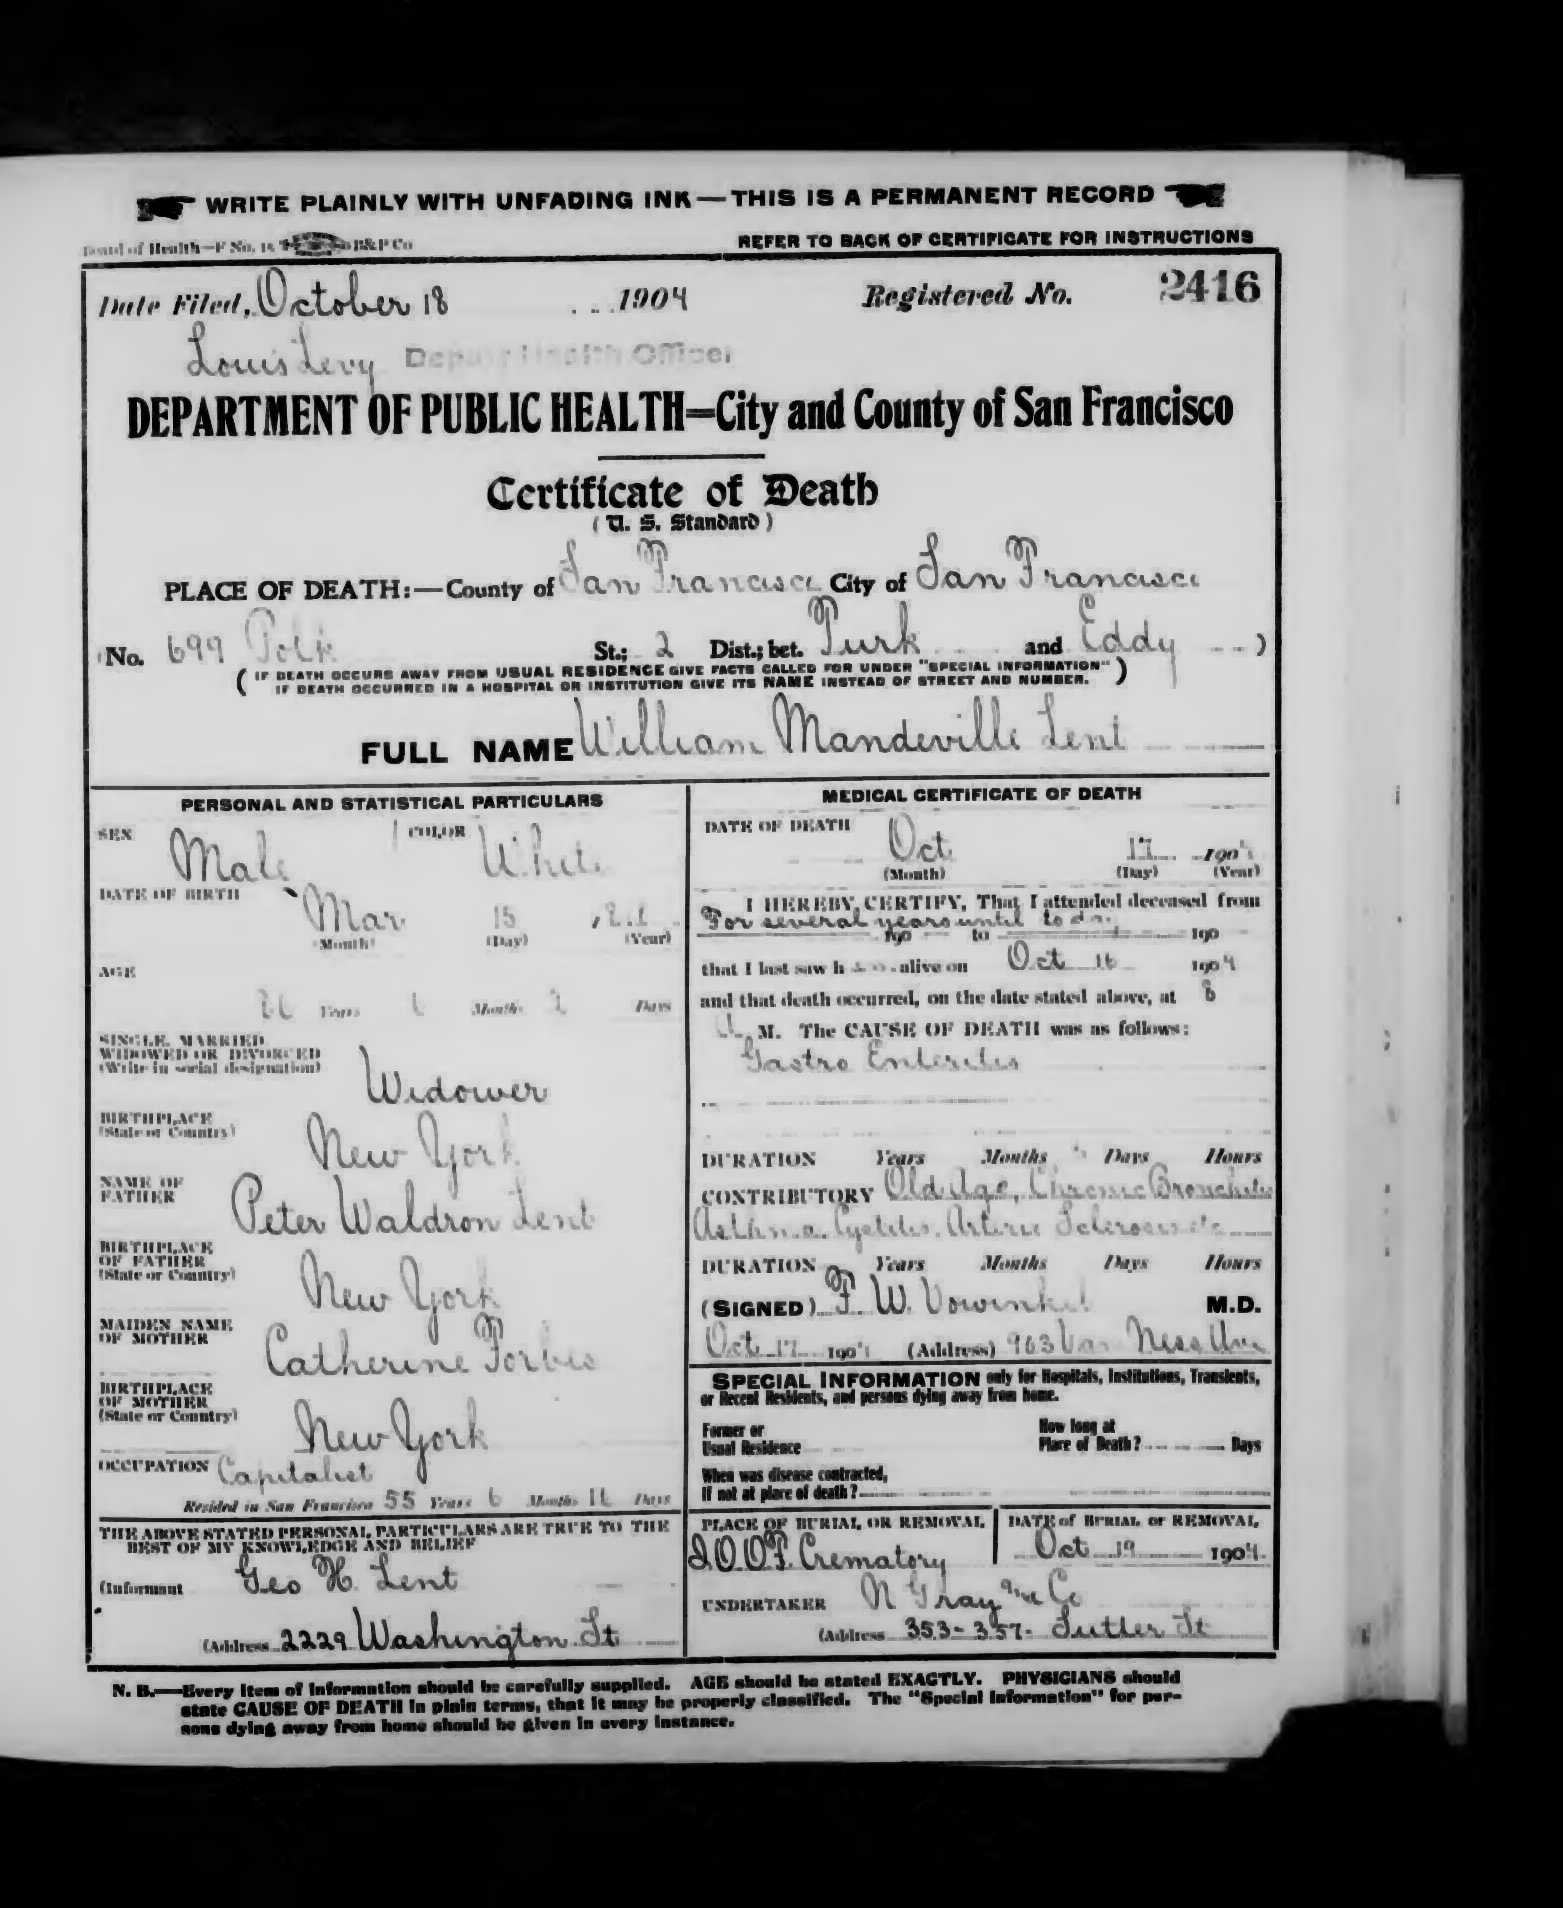 WRITE PLAINLY WITH UNFADING INK — THIS IS A PERMANENT RECORD
Board of Health—F No. 15 B&P Co
REFER TO BACK OF CERTIFICATE FOR INSTRUCTIONS
Date Filed, October 18 1904 Registered No. 2416
Louis Levy Deputy Health Officer
DEPARTMENT OF PUBLIC HEALTH—City and County of San Francisco
Certificate of Death
(U. S. Standard)
PLACE OF DEATH:—County of San Francisco City of San Francisco
(No. 699 Polk St.; 2 Dist.; bet. Turk and Eddy )
( IF DEATH OCCURS AWAY FROM USUAL RESIDENCE GIVE FACTS CALLED FOR UNDER "SPECIAL INFORMATION"
IF DEATH OCCURRED IN A HOSPITAL OR INSTITUTION GIVE ITS NAME INSTEAD OF STREET AND NUMBER. )
FULL NAME William Mandeville Lent
PERSONAL AND STATISTICAL PARTICULARS
SEX Male COLOR White
DATE OF BIRTH Mar 15
(Month) (Day) (Year)
AGE
Years 6 Months 2 Days
SINGLE, MARRIED,
WIDOWED OR DIVORCED
(Write in social designation)
Widower
BIRTHPLACE
(State or Country)
New York
NAME OF
FATHER
Peter Waldron Lent
BIRTHPLACE
OF FATHER
(State or Country)
New York
MAIDEN NAME
OF MOTHER
Catherine Forbes
BIRTHPLACE
OF MOTHER
(State or Country)
New York
OCCUPATION Capitalist
Resided in San Francisco 55 Years 6 Months Days
THE ABOVE STATED PERSONAL PARTICULARS ARE TRUE TO THE
BEST OF MY KNOWLEDGE AND BELIEF
(Informant Geo H. Lent
(Address 2229 Washington St
MEDICAL CERTIFICATE OF DEATH
DATE OF DEATH
Oct 17 1904
(Month) (Day) (Year)
I HEREBY CERTIFY, That I attended deceased from
For several years until to day
190 to 190
that I last saw h alive on Oct 16 1904
and that death occurred, on the date stated above, at 8
A M. The CAUSE OF DEATH was as follows:
Gastro Enteritis
DURATION Years Months Days Hours
CONTRIBUTORY Old Age, Chronic Bronchitis
Asthma, Cystitis, Arterio Sclerosis etc
DURATION Years Months Days Hours
(SIGNED) F. W. Vowinkel M.D.
Oct 17 1904 (Address) 963 Van Ness Ave
SPECIAL INFORMATION only for Hospitals, Institutions, Transients,
or Recent Residents, and persons dying away from home.
Former or
Usual Residence
How long at
Place of Death? Days
When was disease contracted,
If not at place of death?
PLACE OF BURIAL OR REMOVAL
I.O.O.F. Crematory
DATE of BURIAL or REMOVAL
Oct 19 1904
UNDERTAKER N Gray and Co
(Address 353-357- Sutter St
N. B.—Every item of information should be carefully supplied. AGE should be stated EXACTLY. PHYSICIANS should
state CAUSE OF DEATH in plain terms, that it may be properly classified. The "Special Information" for per-
sons dying away from home should be given in every instance.